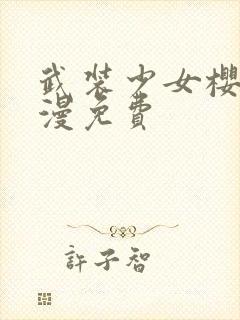 武装少女樱
漫免費
許子智